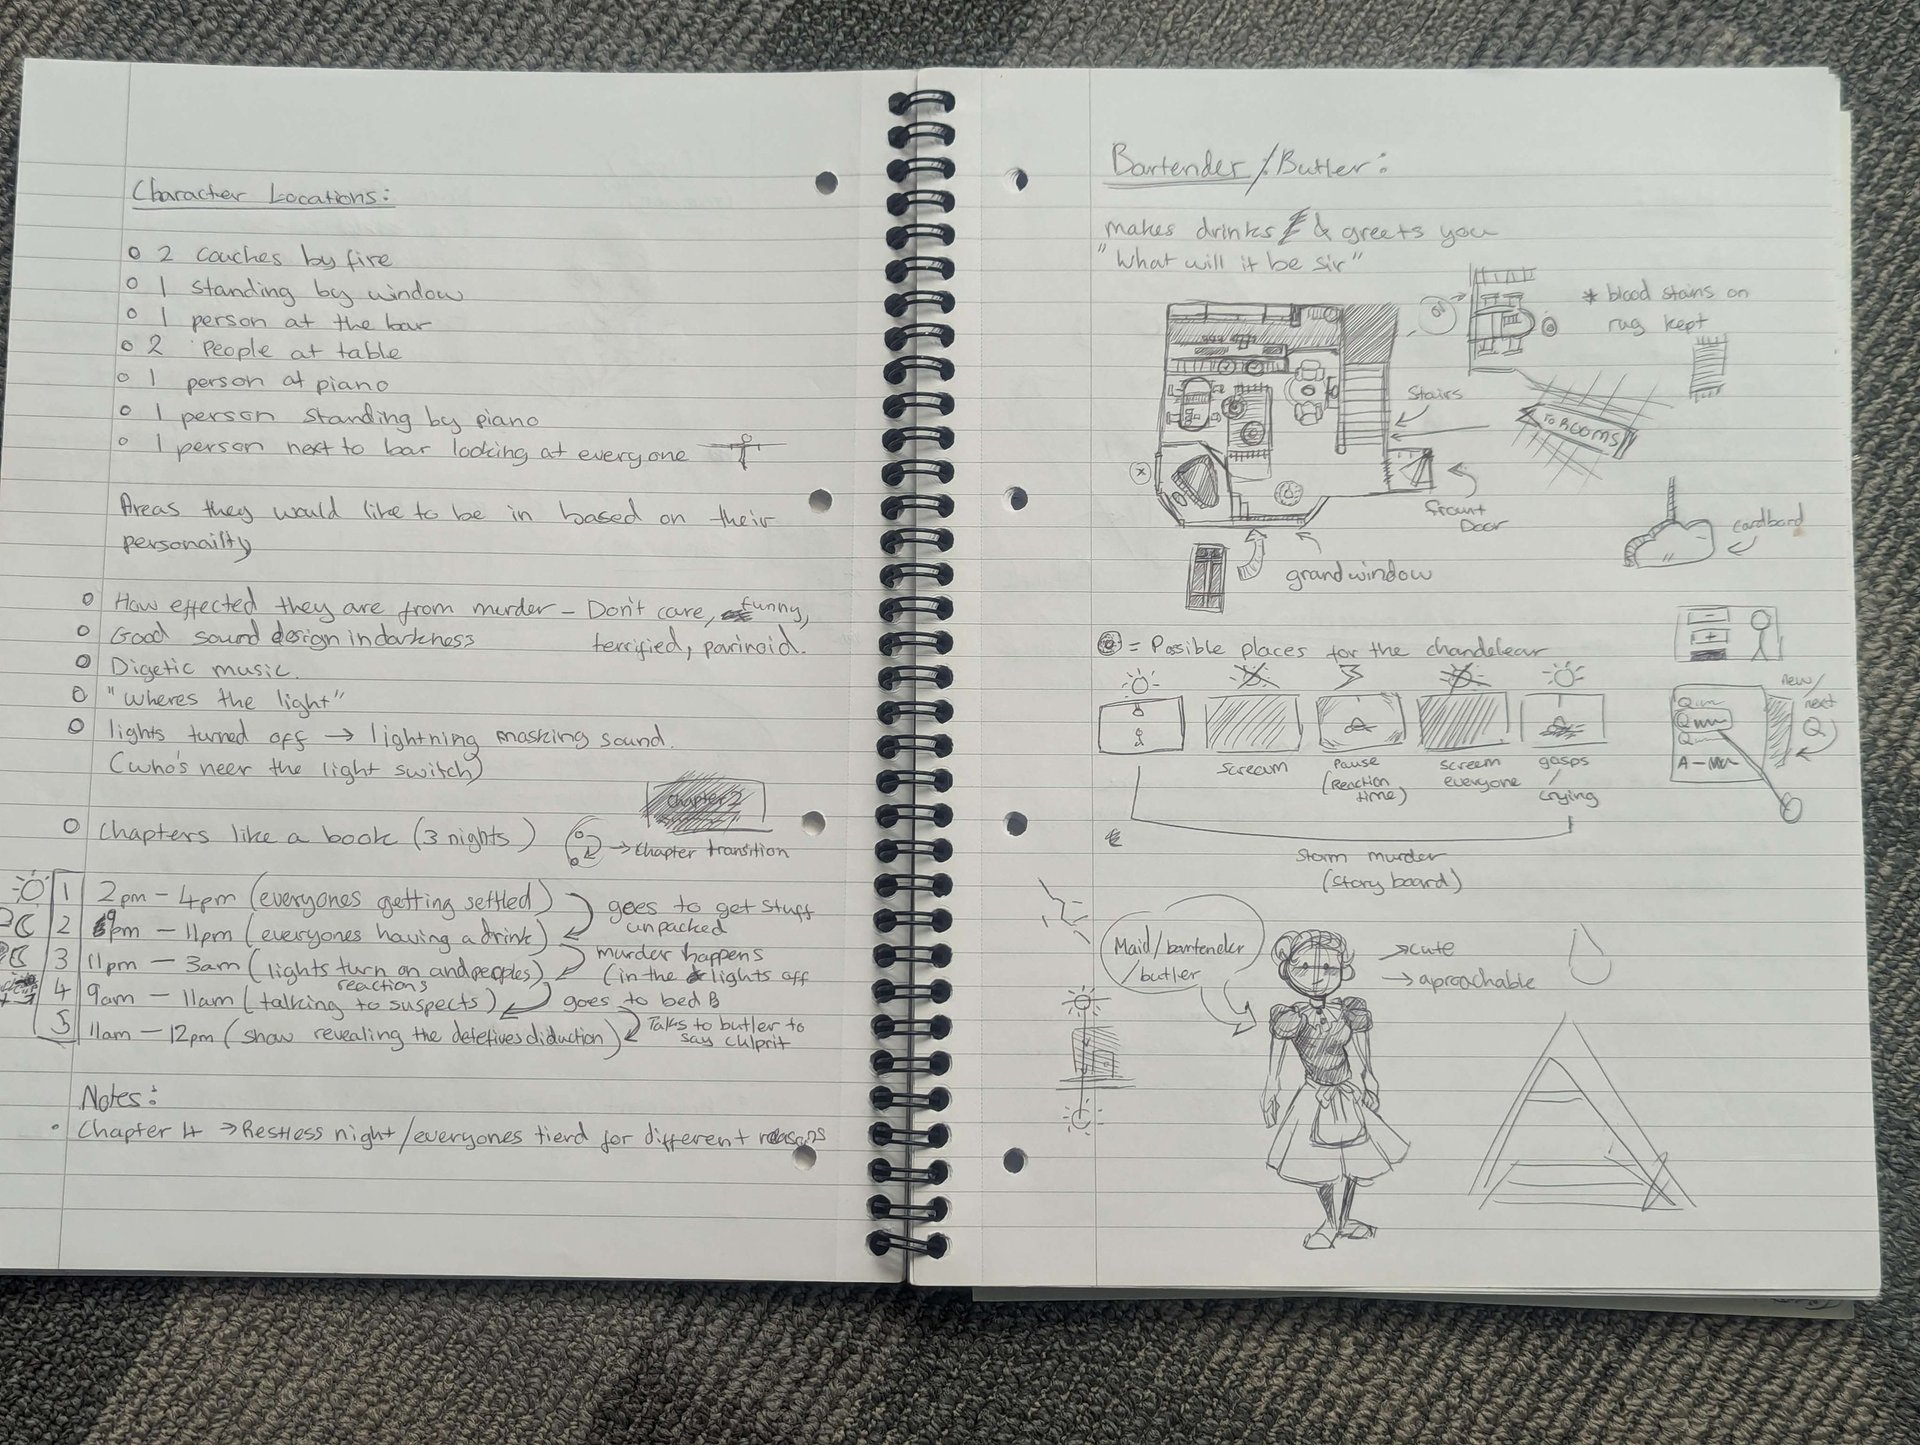 Character Locations:
2 couches by fire
1 standing by window
1 person at the bar
2 People at table
1 person at piano
1 person standing by piano
1 person next to bar looking at everyone
Areas they would like to be in based on their
personailty
How effected they are from murder - Don't care, funny,
terrified, parinoid.
Good sound design in darkness
Digetic music.
"Wheres the light"
lights turned off → lightning masking sound.
(who's neer the light switch)
Chapter 2
Chapters like a book (3 nights)
→ Chapter transition
1 2pm - 4pm (everyones getting settled)
goes to get stuff
unpacked
2 9pm - 11pm (everyones having a drink)
murder happens
(in the lights off
3 11pm - 3am (lights turn on and peoples)
reactions
4 9am - 11am (talking to suspects)
goes to bed
5 11am - 12pm (show revealing the detetives diduction)
Talks to butler to
say culprit
Notes:
Chapter 4 → Restless night/everyones tierd for different reasons
Bartender/Butler:
makes drinks & greets you
"What will it be sir"
* blood stains on
rug kept
Stairs
To ROOMS
frount
Door
cardbord
grand window
= Possible places for the chandelear
scream
Pause
(reaction
time)
scream
everyone
gasps
/
crying
new/
next
Q
Q
Q
Q
A
Storm murder
(story board)
Maid/bartender
/butler
→ cute
→ aproachable